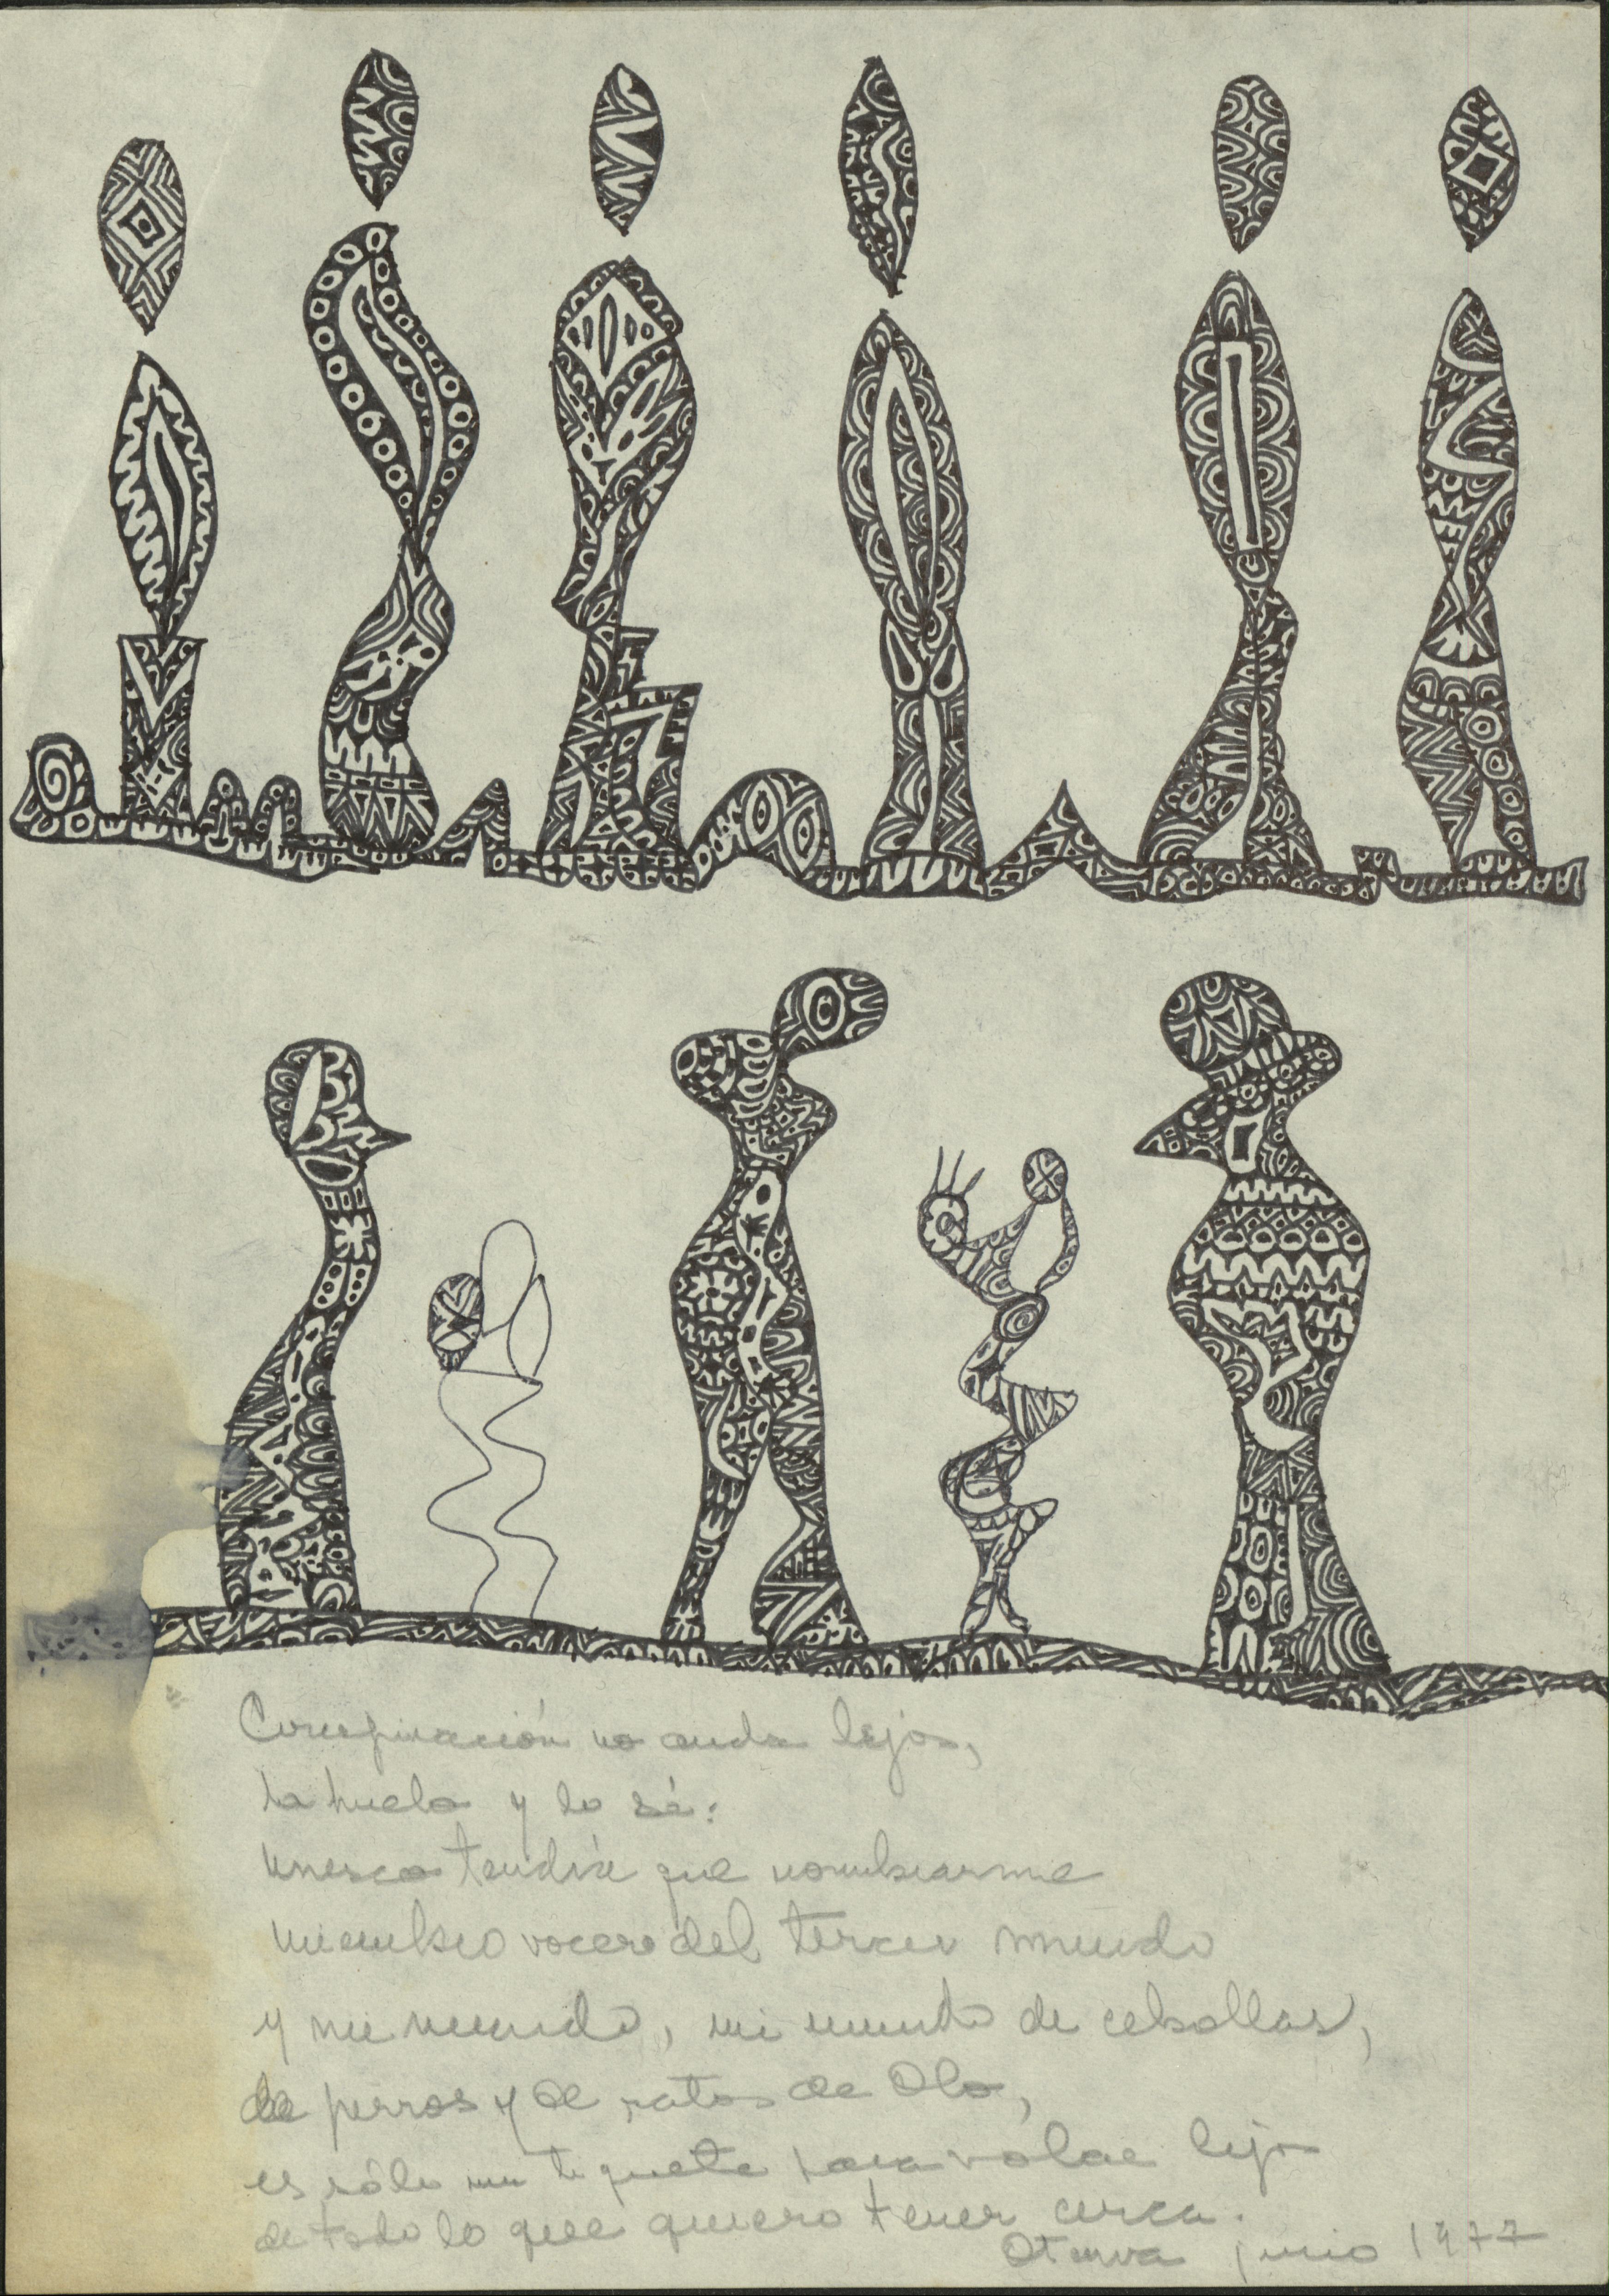 Conspiración no anda lejos,
la huelo y lo sé:
unesco tendría que nombrarme
miembro vocero del tercer mundo
y mi mundo, mi mundo de cebollas,
de perros y de ratos de
es sólo un tiquete para volar lejos
de todo lo que quiero tener cerca.
junio 1977